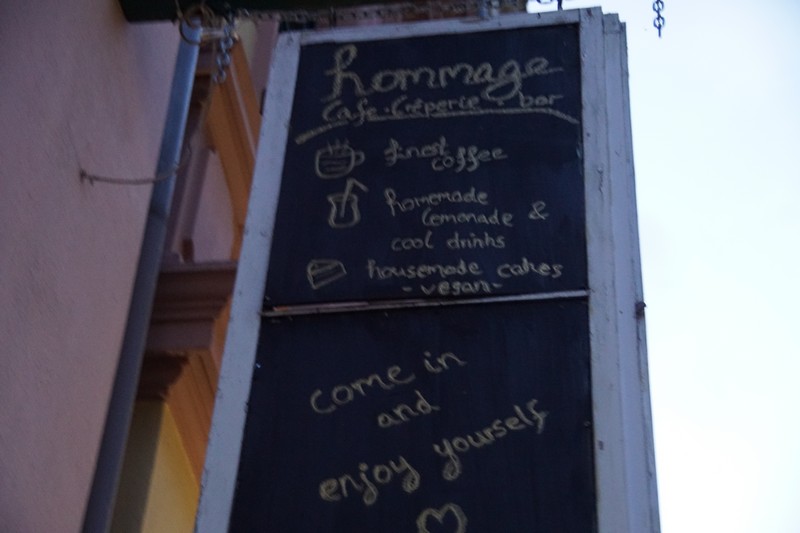 hommage
Cafe·Crêperie·bar
finest
coffee
homemade
lemonade &
cool drinks
housemade cakes
-vegan-
come in
and
enjoy yourself